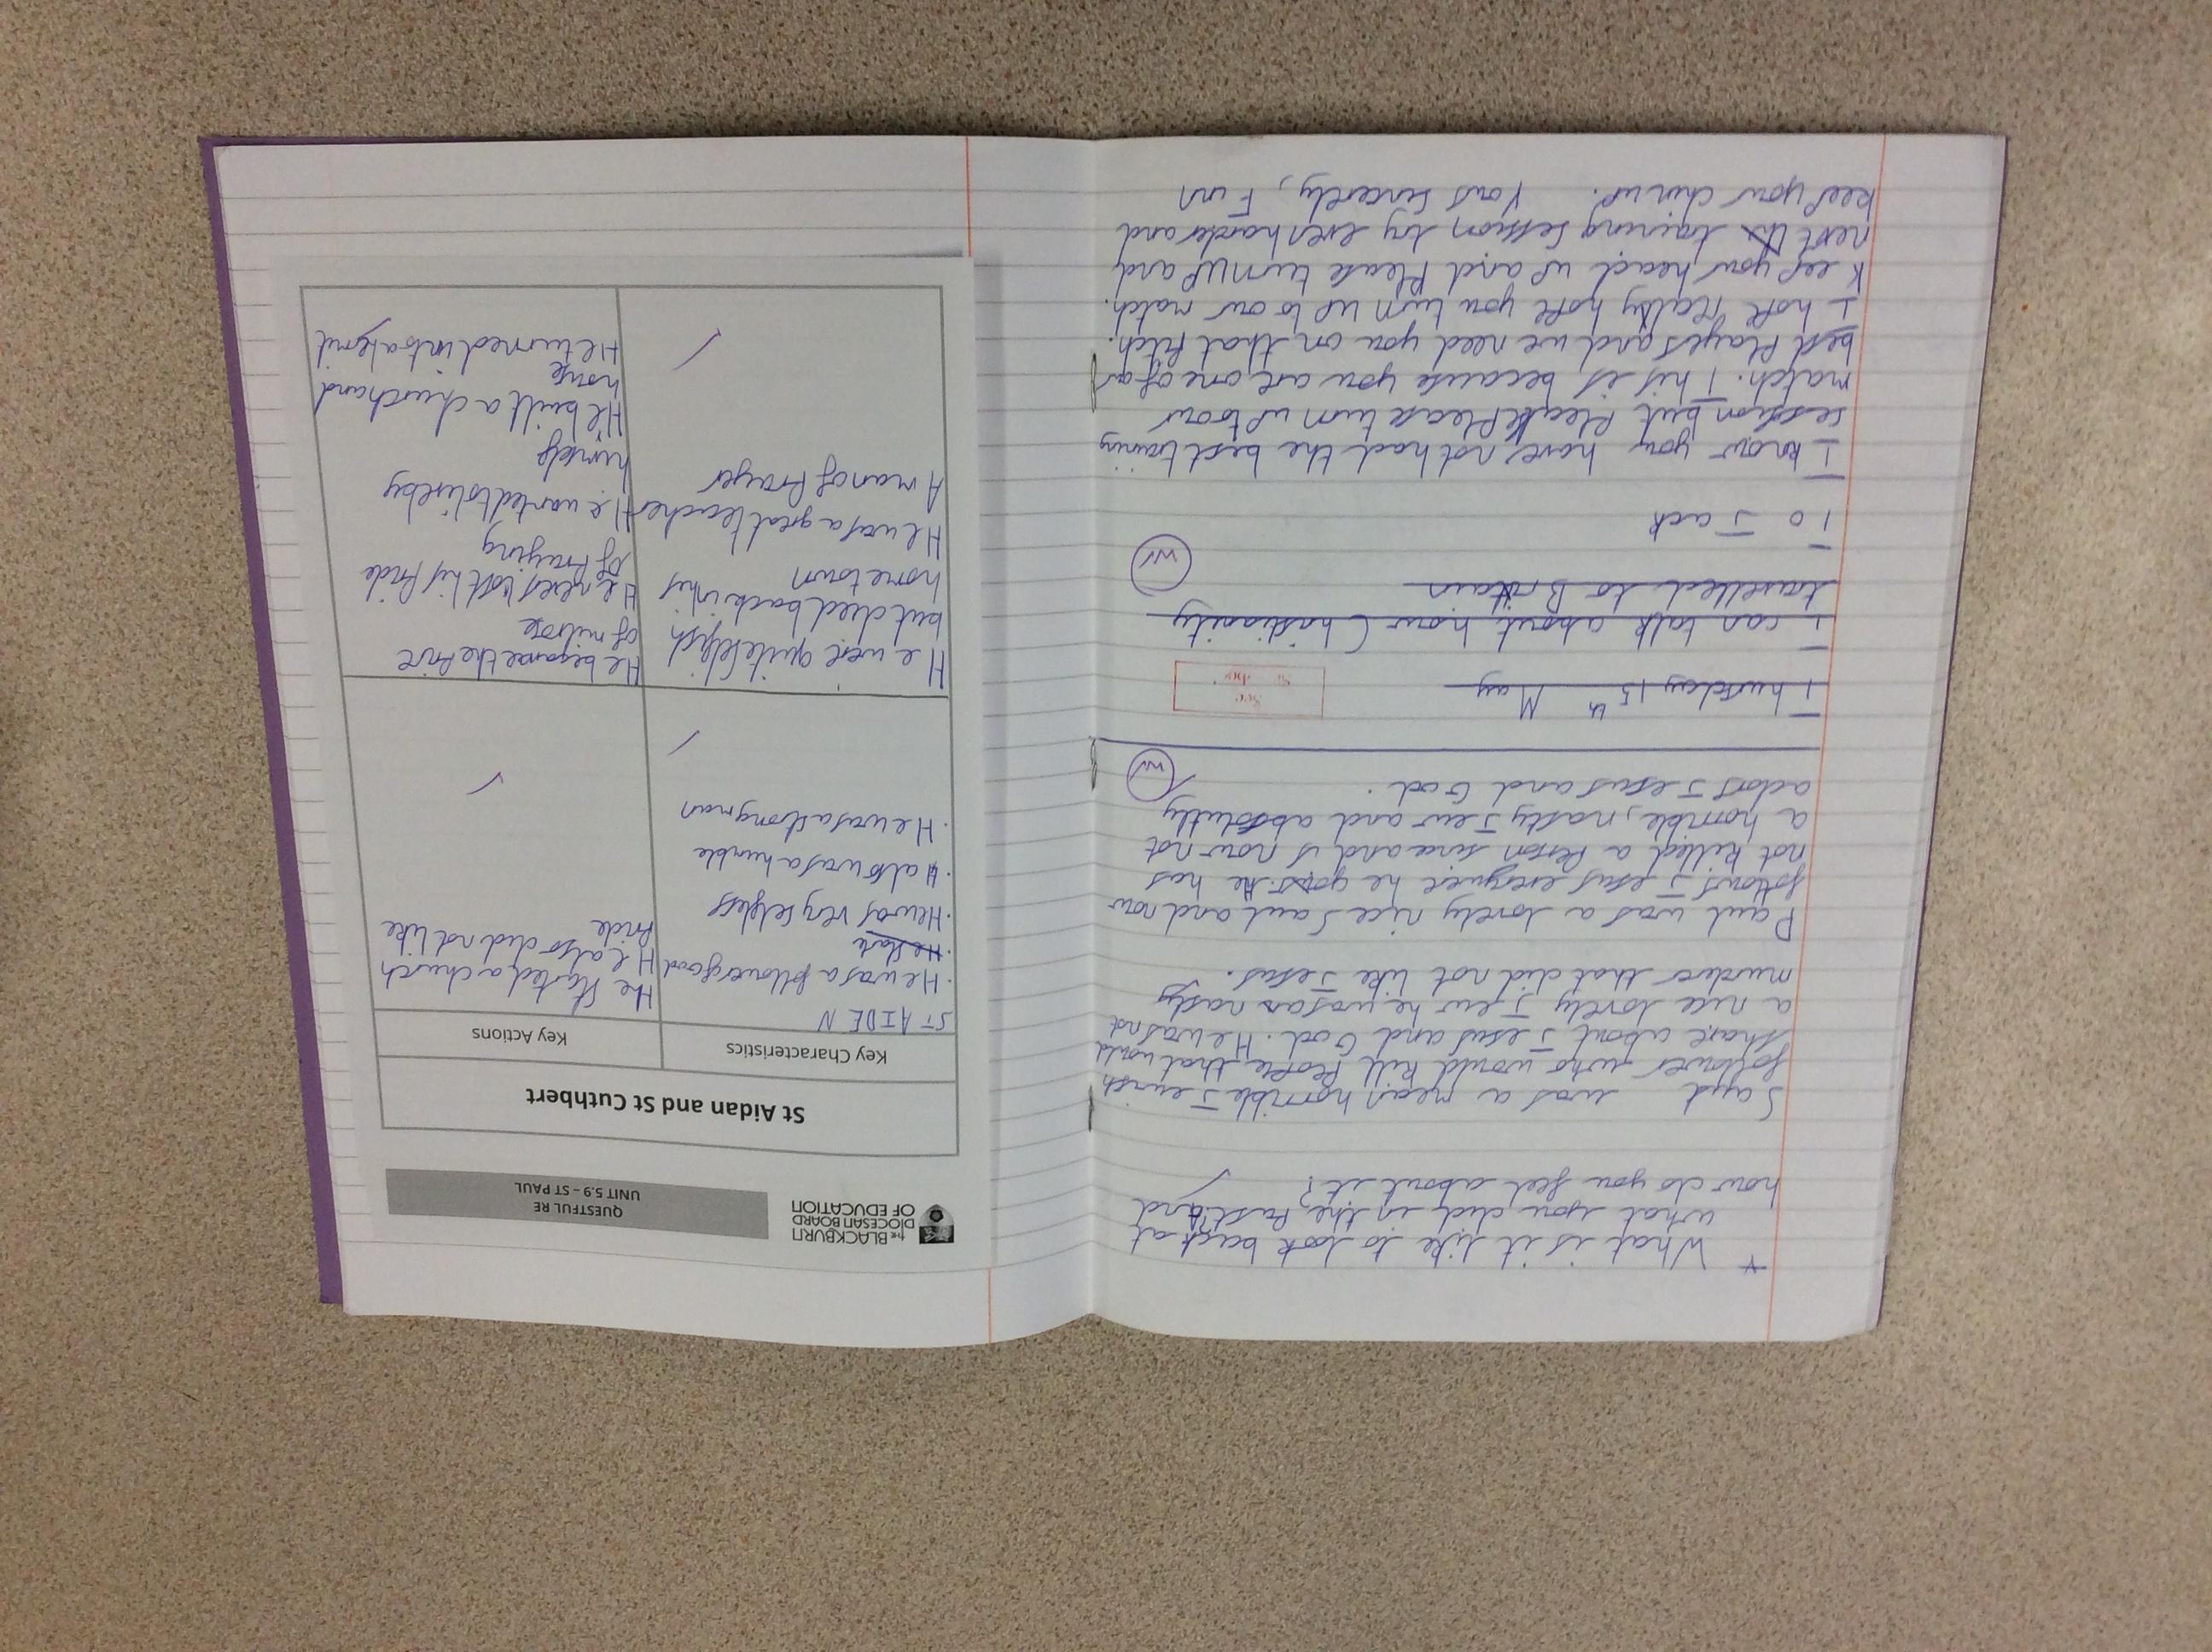 * What is it like to look back at
what you did in the past and
how do you feel about it?
Saul was a mean horrible Jewish
follower who would kill People that would
share about Jesus and God. He was not
a nice lovely Jew he was an nasty
murderer that did not like Jesus.
Paul was a lovely nice Saul and now
follows Jesus everywere he goes. He has
not killed a Person since and is now not
a horrible, nasty Jew and absolutly
adors Jesus and God.
Thursday 15th May
I can talk about how Christianity
travelled to Britain
To Jack
I know you have not had the best training
session but Please Please turn up to our
match. This is because you are one of our
best Players and we need you on that Pitch.
I hope really hope you turn up to our match.
Keep your head up and Please turn up and
next training session try even harder and
keep your chin up. Yours sincerely, Finn
THE BLACKBURN
DIOCESAN BOARD
OF EDUCATION
QUESTFUL RE
UNIT 5.9 – ST PAUL
St Aidan and St Cuthbert
Key Characteristics
Key Actions
ST AIDEN
• He was a follower good
• He
• He was very selfless
• also was a humble
• He was a strong man
He Started a church
He also did not like
Pride
He were quite selfish
but died back in his
home town
He was a great teacher
A man of Prayer
He became the
of melrose
He never lost his Pride
of Praying
He wanted to live by
himself
He built a church and
house
He turned into a hermit